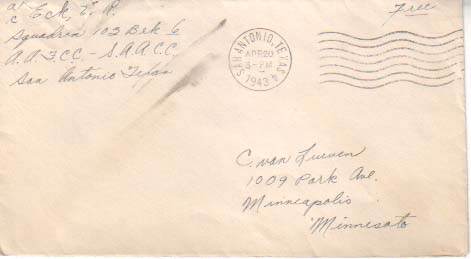 a/c Eck, E. R.
Squadron 102 Brk 6
A.A.F.C.C. - S.A.A.C.C.
San Antonio Texas
Free
SAN ANTONIO, TEXAS
APR 20
3-PM
1943
C. van Lueven
1009 Park Ave.
Minneapolis
Minnesota